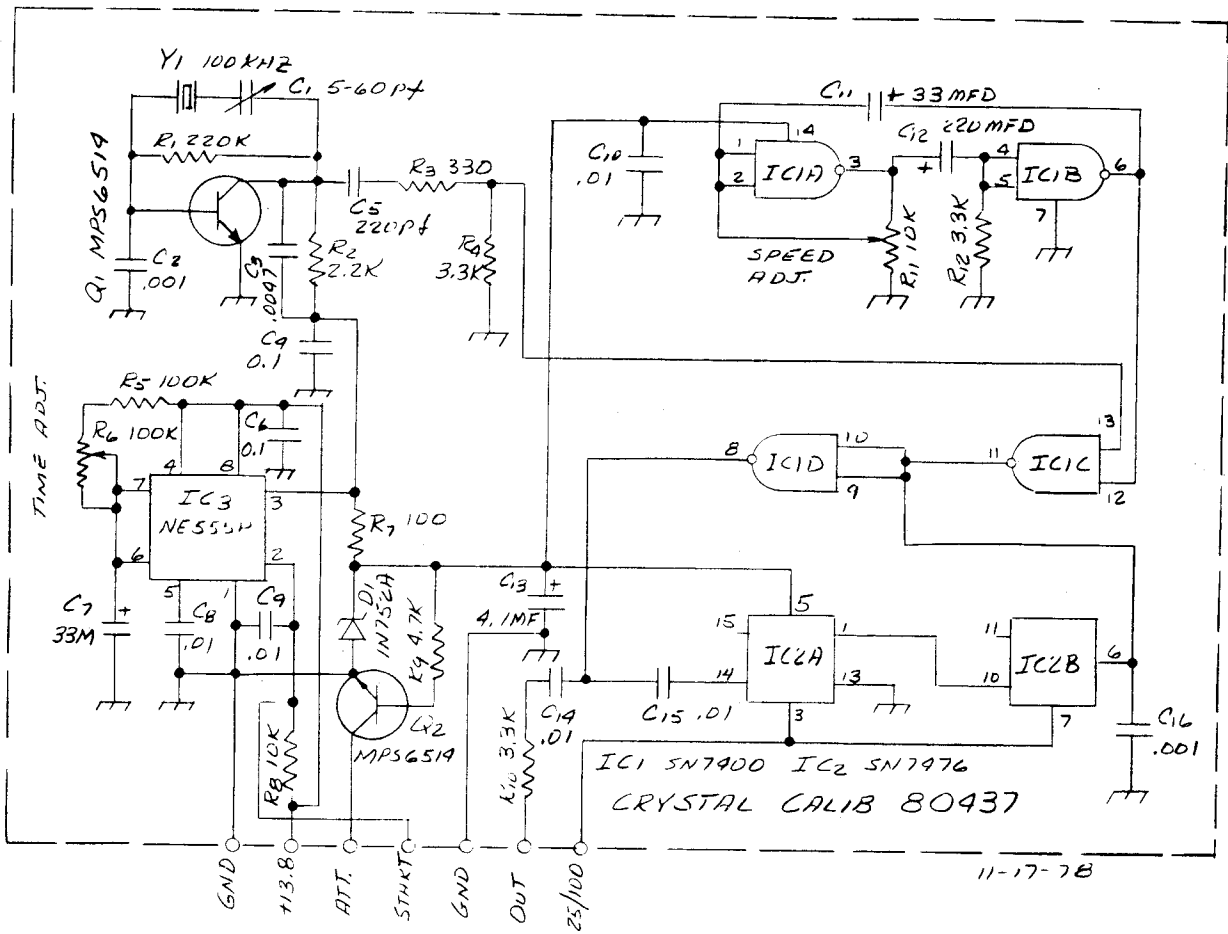 Y1 100KHZ
C1 5-60Pf
R1 220K
Q1 MPS6514
C2
.001
C3
.0047
R2
2.2K
C5
220Pf
R3 330
R4
3.3K
C4
0.1
C11
+ 33MFD
C12 220MFD
+
C10
.01
14
1
2
IC1A
3
4
5
IC1B
6
7
SPEED
ADJ.
R11 10K
R12 3.3K
TIME ADJ.
R5 100K
R6 100K
C6
0.1
4
8
7
IC3
3
6
2
5
1
C7
33M
+
C8
.01
C9
.01
R7 100
D1
1N752A
R9 4.7K
Q2
MPS6514
R8 10K
C13
+
4.1MF
C14
.01
R10 3.3K
C15 .01
8
IC1D
10
9
11
IC1C
13
12
5
15
IC2A
1
14
13
3
11
IC2B
6
10
7
C16
.001
IC1 SN7400 IC2 SN7476
CRYSTAL CALIB 80437
GND
+13.8
ATT.
STHKT
GND
OUT
25/100
11-17-78